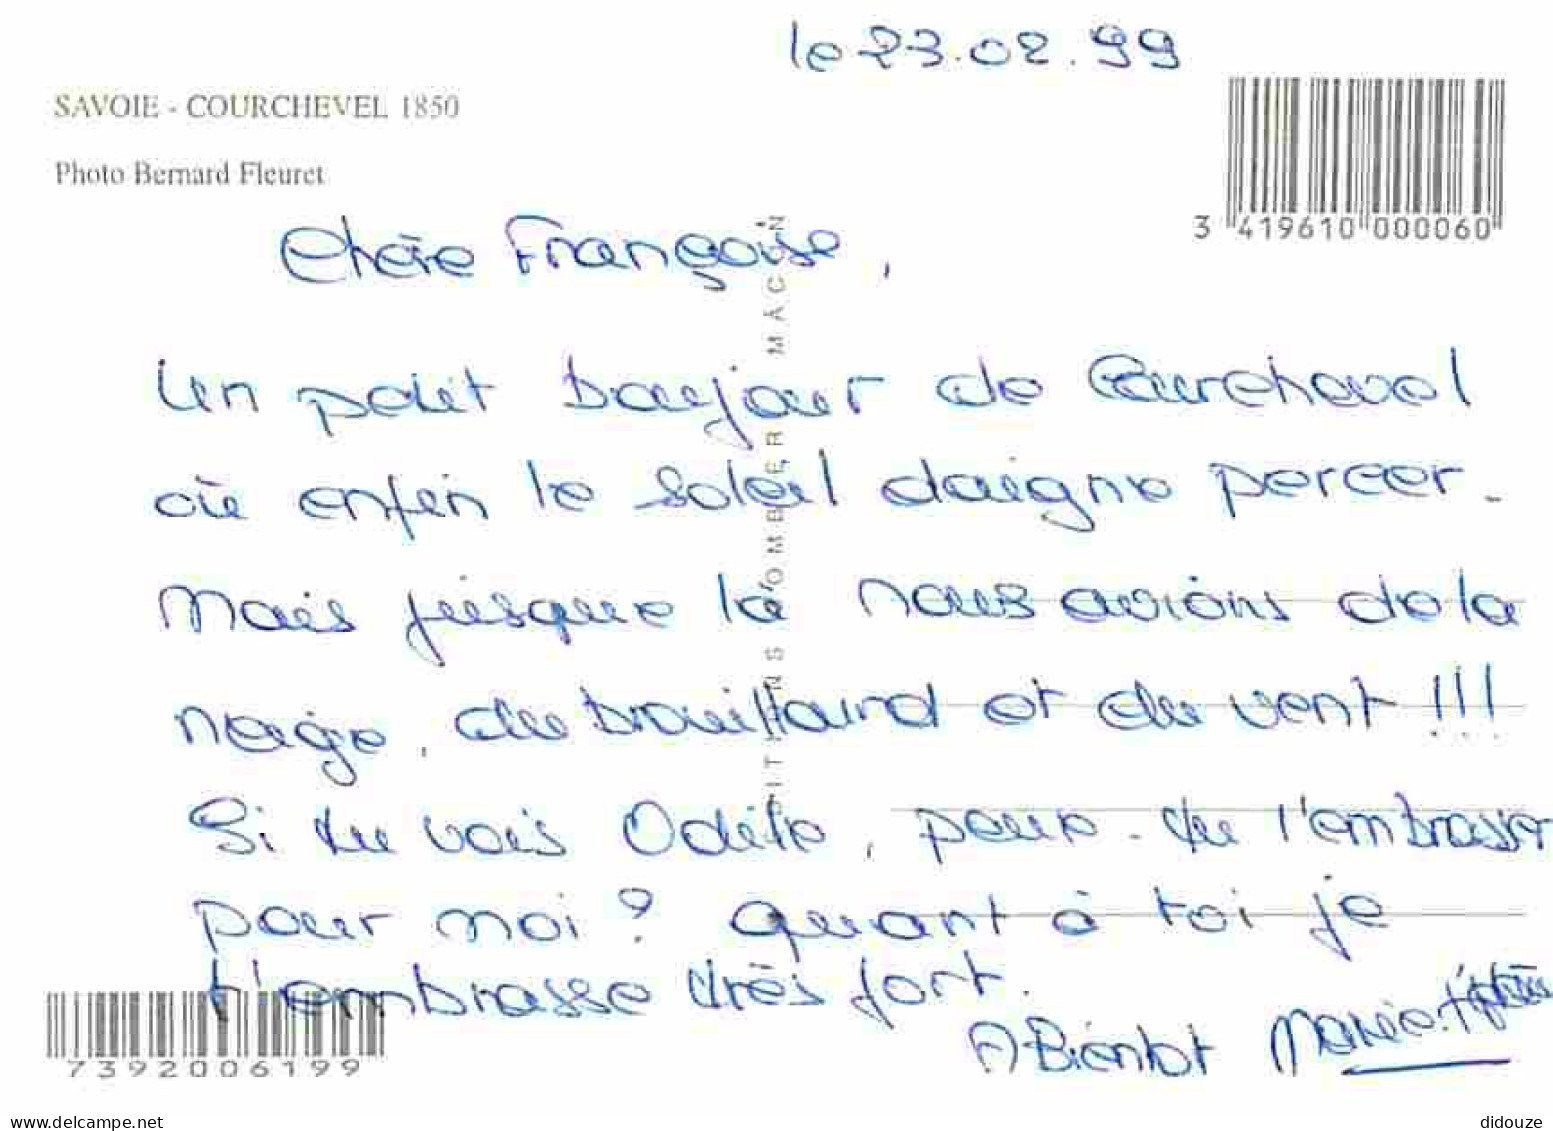 le 23.02.99
SAVOIE - COURCHEVEL 1850
Photo Bernard Fleuret
3 419610 000060
Chère Françoise,
Un petit bonjour de Courchevel
où enfin le soleil daigne percer.
Mais jusque là nous avions de la
neige, du brouillard et du vent !!!
Si tu vois Odile, peux-tu l'embrasser
pour moi ? Quant à toi je
t'embrasse très fort.
A Bientot Marie
7392006199
www.delcampe.net
didouze